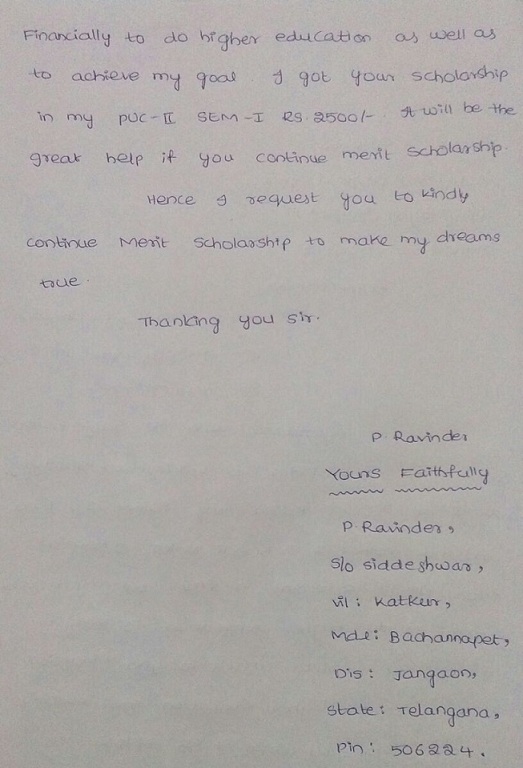 Financially to do higher education as well as
to achieve my goal. I got your scholarship
in my PUC-II SEM-I RS. 2500/- It will be the
great help if you continue merit scholarship.
Hence I request you to kindly
continue Merit Scholarship to make my dreams
true.
Thanking you sir.
P Ravinder
Yours Faithfully
P. Ravinder,
S/o Siddeshwar,
Vil: Katkur,
Mdl: Bachannapet,
Dis: Jangaon,
State: Telangana,
Pin: 506224.